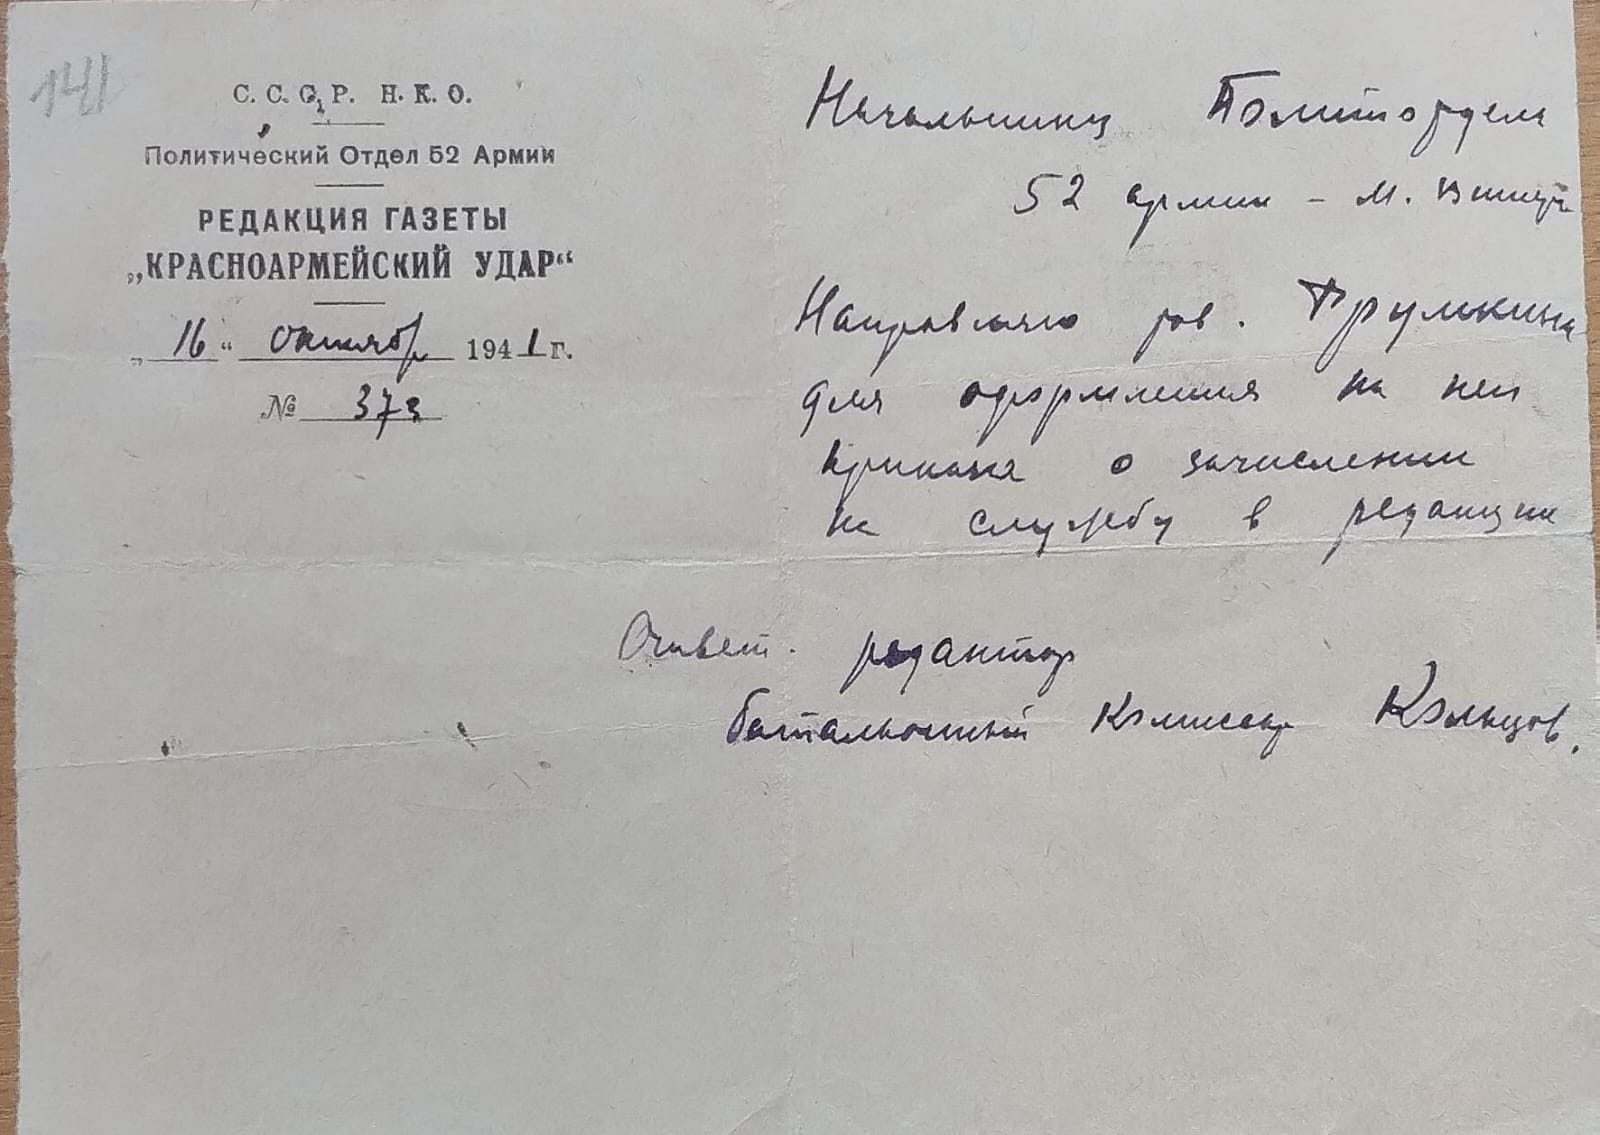 141
С. С. С. Р. Н. К. О.
Политический Отдел 52 Армии
РЕДАКЦИЯ ГАЗЕТЫ
„КРАСНОАРМЕЙСКИЙ УДАР“
„16“ октябр 1941 г.
№ 373
Начальнику Политотдела
52 армии –
Направляю тов. Фрумкина
для оформления на нем
приказа о зачислении
на службу в редакции
Ответ. редактор
батальонный комиссар Кольцов.